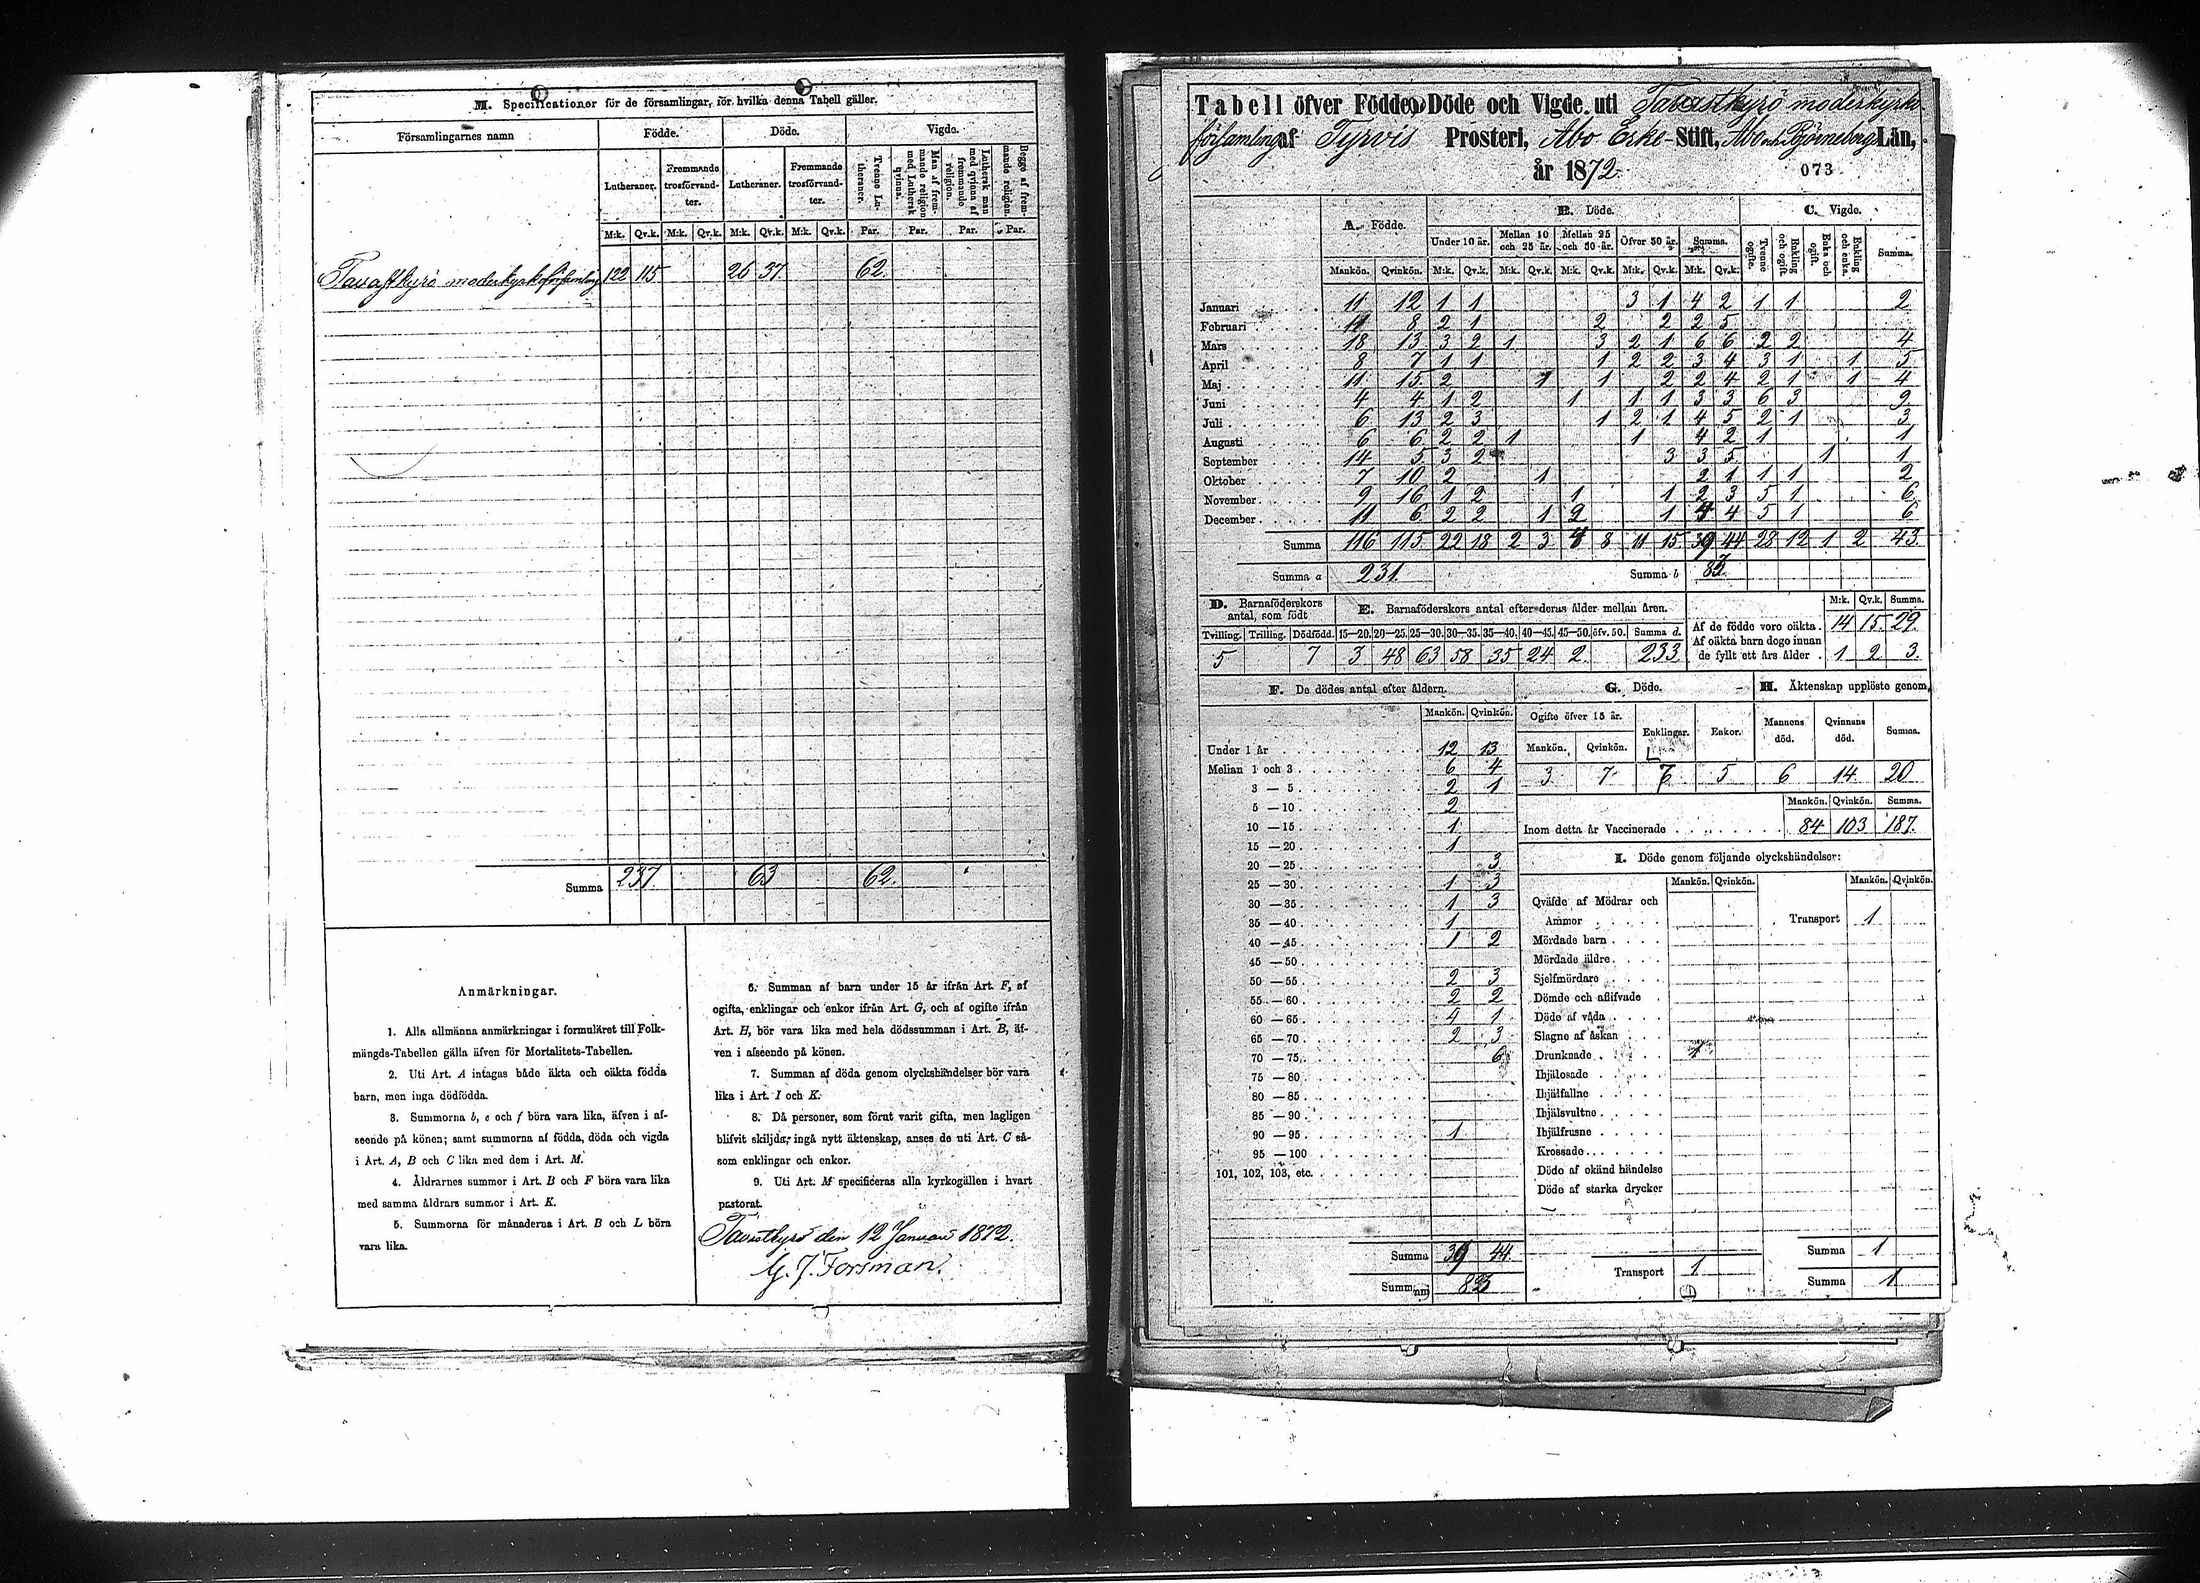 M. Specificationer för de församlingar, för hvilka denna Tabell gäller.
Församlingarnes namn Födde. Döde. Vigde.
Lutheraner. Fremmande trosförvandter. Lutheraner. Fremmande trosförvandter. Trenne Lutheraner. Man af fremmande religion med Luthersk qvinna. Luthersk man med qvinna af fremmande religion. Begge af fremmande religion.
M:k. Qv.k. M:k. Qv.k. M:k. Qv.k. M:k. Qv.k. Par. Par. Par. Par.
Tavastkyrö moderkyrkoförsamling 122 115 26 37. 62.
Summa 237 63 62.
Anmärkningar.
1. Alla allmänna anmärkningar i formuläret till Folk-
mängds-Tabellen gälla äfven för Mortalitets-Tabellen.
2. Uti Art. A intagas både äkta och oäkta födda
barn, men inga dödfödda.
3. Summorna b, e och f böra vara lika, äfven i af-
seende på könen; samt summorna af födda, döda och vigda
i Art. A, B och C lika med dem i Art. M.
4. Åldrarnes summor i Art. B och F böra vara lika
med samma åldrars summor i Art. K.
5. Summorna för månaderna i Art. B och L böra
vara lika.
6. Summan af barn under 15 år ifrån Art. F, af
ogifta, enklingar och enkor ifrån Art. G, och af ogifte ifrån
Art. H, bör vara lika med hela dödssumman i Art. B, äf-
ven i afseende på könen.
7. Summan af döda genom olyckshändelser bör vara
lika i Art. I och K.
8. Då personer, som förut varit gifta, men lagligen
blifvit skiljda, ingå nytt äktenskap, anses de uti Art. C så-
som enklingar och enkor.
9. Uti Art. M specificeras alla kyrkogällen i hvart
pastorat.
Tavastkyrö den 12 Januari 1872.
G. J. Forsman.
Tabell öfver Födde, Döde och Vigde uti Tavastkyrö moderkyrko
församling af Tyrvis Prosteri, Åbo Erke-Stift, Åbo och Björneborgs Län,
år 1872. 073
A. Födde. B. Döde. C. Vigde.
Under 10 år. Mellan 10 och 25 år. Mellan 25 och 50 år. Öfver 50 år. Summa. Trenne ogifte. Enkling och ogift. Enka och ogift. Enkling och enka. Summa.
Mankön. Qvinkön. M:k. Qv.k. M:k. Qv.k. M:k. Qv.k. M:k. Qv.k. M:k. Qv.k.
Januari 11 12 1 1 3 1 4 2 1 1 2
Februari 11 8 2 1 2 2 2 5
Mars 18 13 3 2 1 3 2 1 6 6 2 2 4
April 8 7 1 1 1 2 2 3 4 3 1 1 5
Maj 11 15 2 1 1 2 2 4 2 1 1 4
Juni 4 4 1 2 1 1 1 3 3 6 3 9
Juli 6 13 2 3 1 2 1 4 5 2 1 3
Augusti 6 6 2 2 1 1 4 2 1 1
September 14 5 3 2 3 3 5 1 1
Oktober 7 10 2 1 2 1 1 1 2
November 9 16 1 2 1 1 2 3 5 1 6
December 11 6 2 2 1 2 1 4 4 5 1 6
Summa 116 115 22 18 2 3 4 8 11 15 39 44 28 12 1 2 43
Summa a 231 Summa b 83
D. Barnaföderskors antal, som födt
E. Barnaföderskors antal efter deras ålder mellan åren.
M:k. Qv.k. Summa.
Tvilling. Trilling. Dödfödd. 15—20. 20—25. 25—30. 30—35. 35—40. 40—45. 45—50. öfv. 50. Summa d.
5 7 3 48 63 58 35 24 2 233
Af de födde voro oäkta. 14 15 29
Af oäkta barn dogo innan de fyllt ett års ålder 1 2 3
F. De dödes antal efter åldern.
Mankön. Qvinkön.
Under 1 år 12 13
Mellan 1 och 3 6 4
3 — 5 2 1
5 —10 2
10 —15 1
15 —20 1
20 —25 3
25 —30 1 3
30 —35 1 3
35 —40 1
40 —45 1 2
45 —50
50 —55 2 3
55 —60 2 2
60 —65 4 1
65 —70 2 3
70 —75 6
75 —80
80 —85
85 —90
90 —95 1
95 —100
101, 102, 103, etc.
Summa 39 44
Summa 83
G. Döde.
Ogifte öfver 15 år. Enklingar. Enkor.
Mankön. Qvinkön.
3 7 7 5
H. Äktenskap upplöste genom
Mannens död. Qvinnans död. Summa.
6 14 20
Mankön. Qvinkön. Summa.
Inom detta år Vaccinerade 84 103 187.
I. Döde genom följande olyckshändelser:
Mankön. Qvinkön. Mankön. Qvinkön.
Qväfde af Mödrar och
Ammor
Mördade barn
Mördade äldre
Sjelfmördare
Dömde och aflifvade
Döde af våda
Slagne af åskan
Drunknade 1
Ihjälosade
Ihjälfallne
Ihjälsvultne
Ihjälfrusne
Krossade
Döde af okänd händelse
Döde af starka drycker
Transport 1
Transport 1
Summa 1
Summa 1